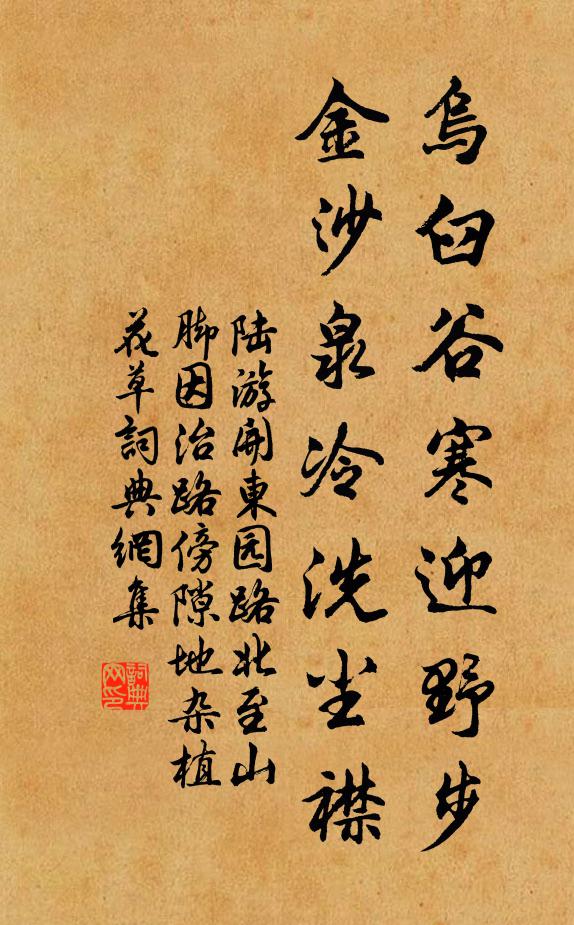 烏臼谷寒迎野步
金沙泉冷洗尘襟
陆游開東园路北至山
脚因治路傍隙地杂植
花草詞典網集
詞典
网印